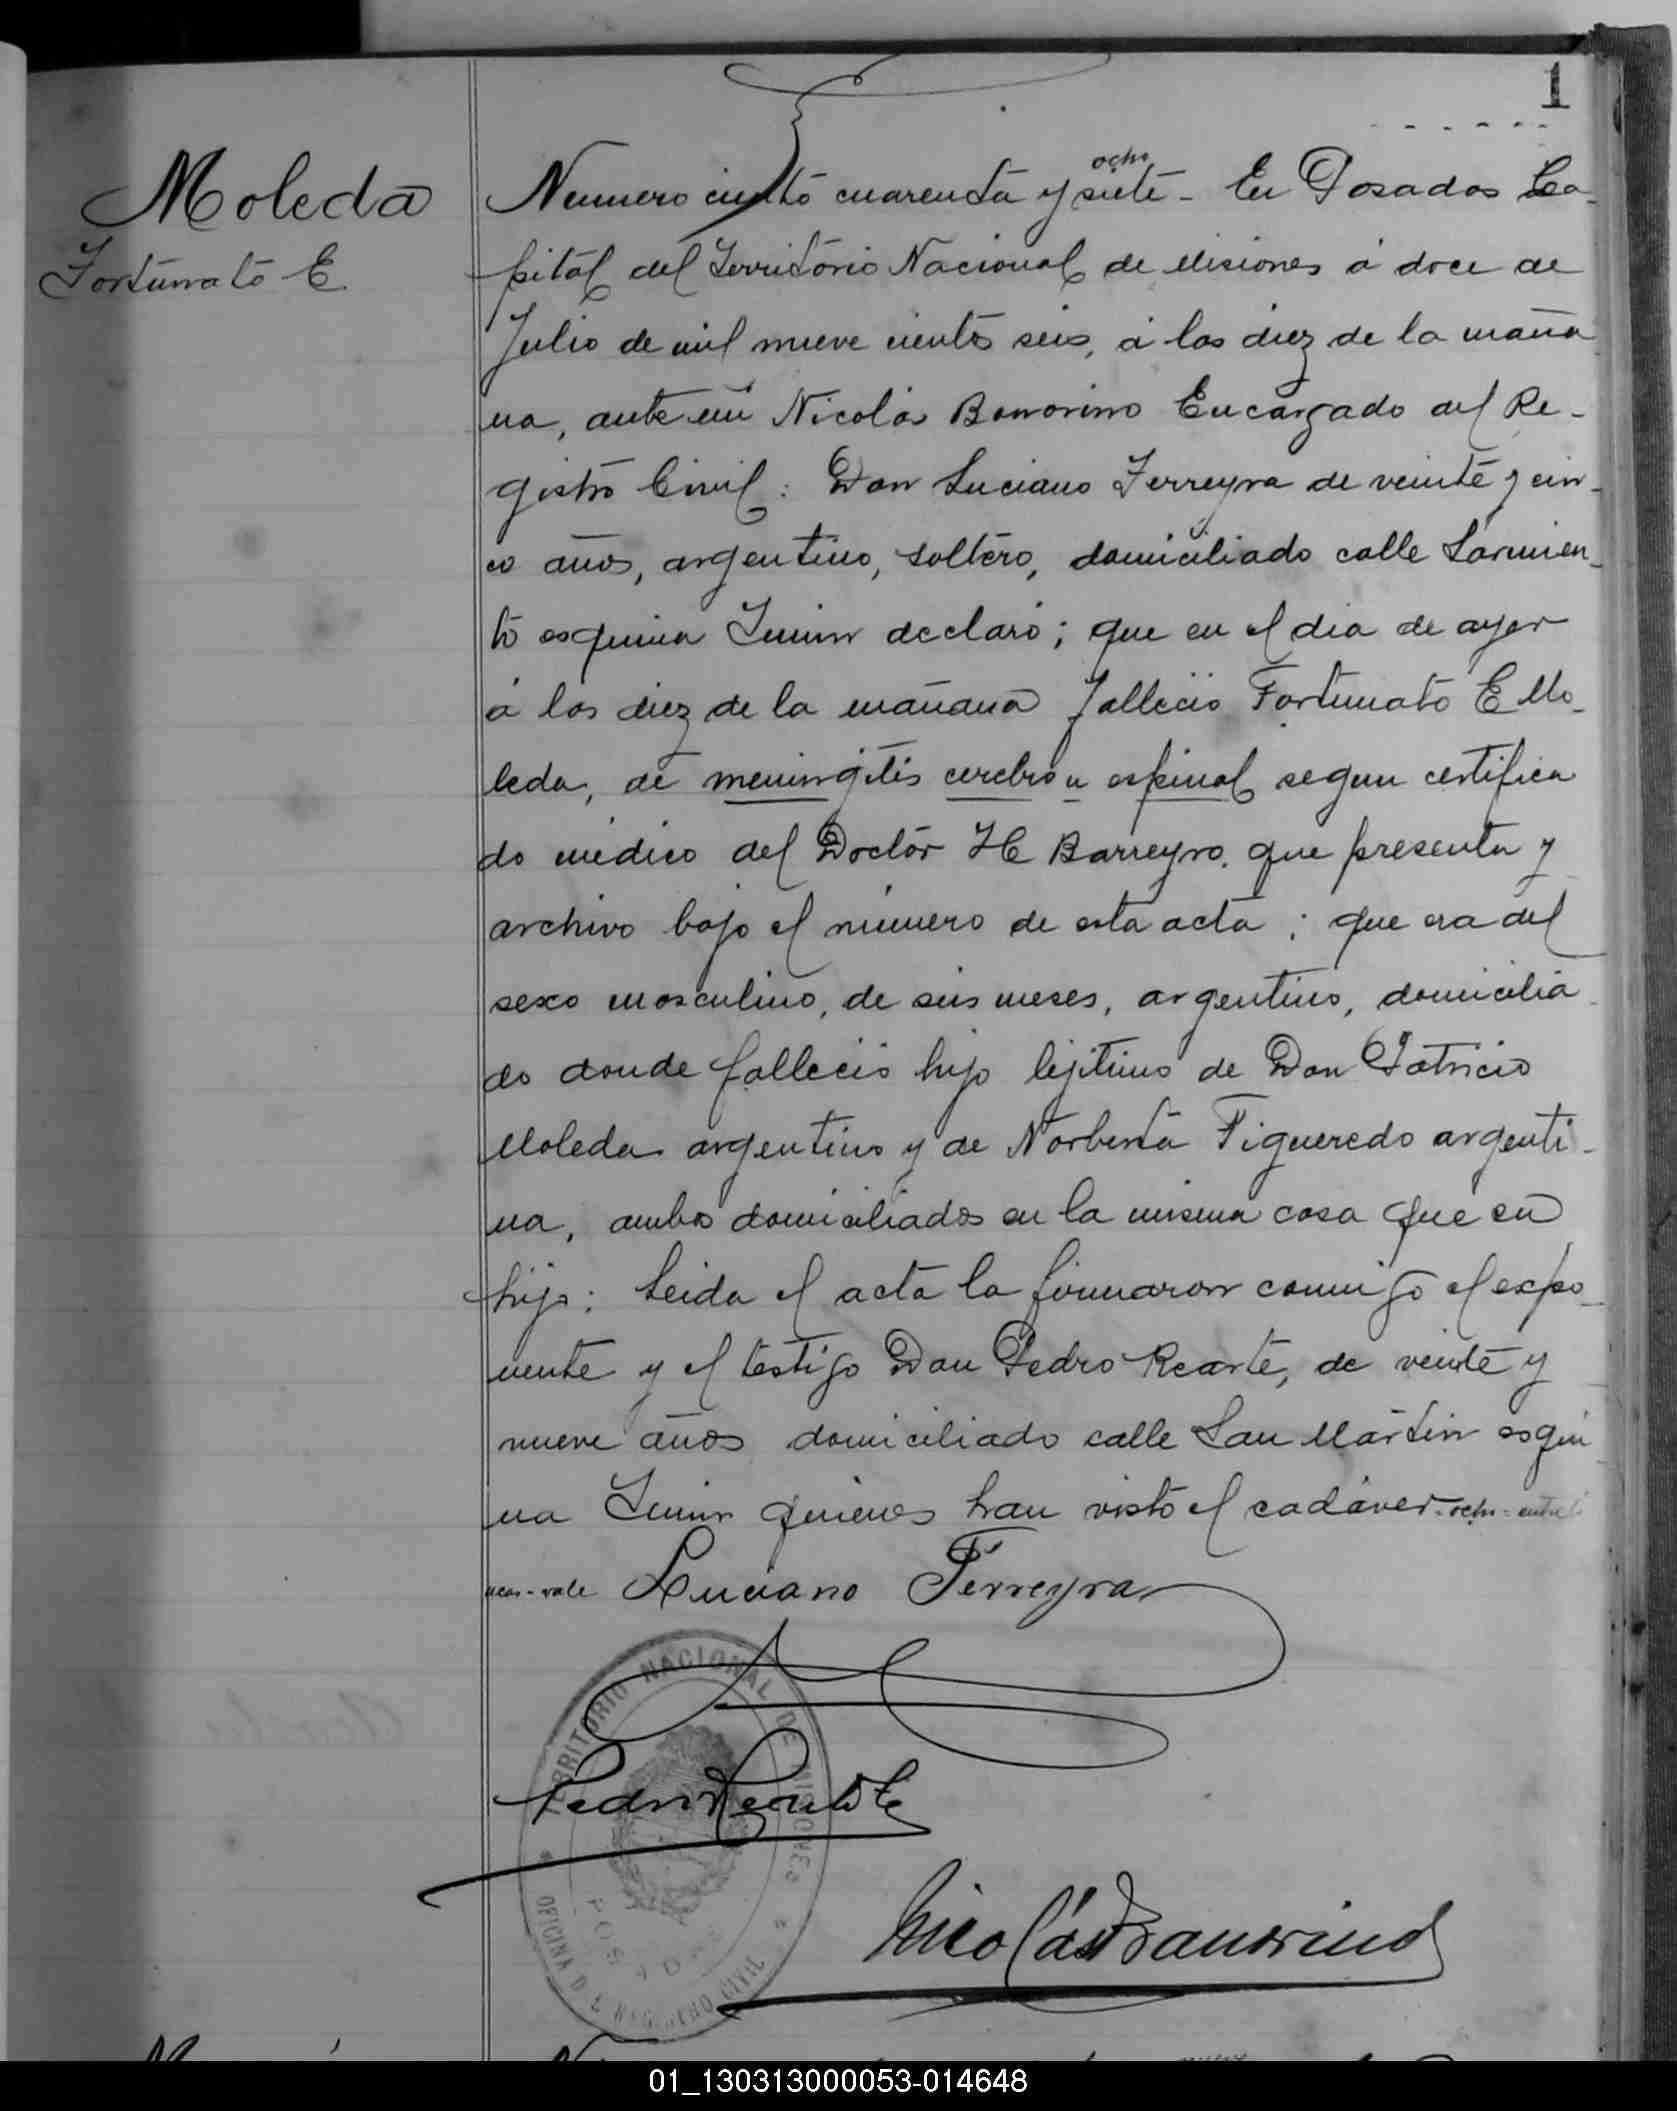 1
Moleda
Fortunato E.
ocho
Numero ciento cuarenta y siete - En Posadas Ca-
pital del Territorio Nacional de Misiones á doce de
Julio de mil nueve cientos seis, á las diez de la maña
na, ante mí Nicolás Bonorino Encargado del Re-
gistro Civil: Don Luciano Ferreyra de veinte y cin-
co años, argentino, soltero, domiciliado calle Sarmien-
to esquina Junin declaró; que en el dia de ayer
á las diez de la mañana falleció Fortunato E Mo-
leda, de meningitis cerebro espinal segun certifica
do médico del Doctor H Barreyro. que presenta y
archivo bajo el número de esta acta; que era del
sexo masculino, de seis meses, argentino, domicilia
do donde falleció hijo lejitimo de Don Patricio
Moleda argentino y de Norberta Figueredo argenti-
na, ambos domiciliados en la misma casa que su
hijo: Leida el acta la firmaron conmigo el expo-
nente y el testigo Don Pedro Rearte, de veinte y
nueve años domiciliado calle San Martin esqui
na Junin quienes han visto el cadáver - ocho - entreli
neas - vale Luciano Ferreyra
TERRITORIO NACIONAL DE MISIONES
Pedro
POSADAS
Nicolás Bonorino
OFICINA DEL REGISTRO CIVIL
01_130313000053-014648